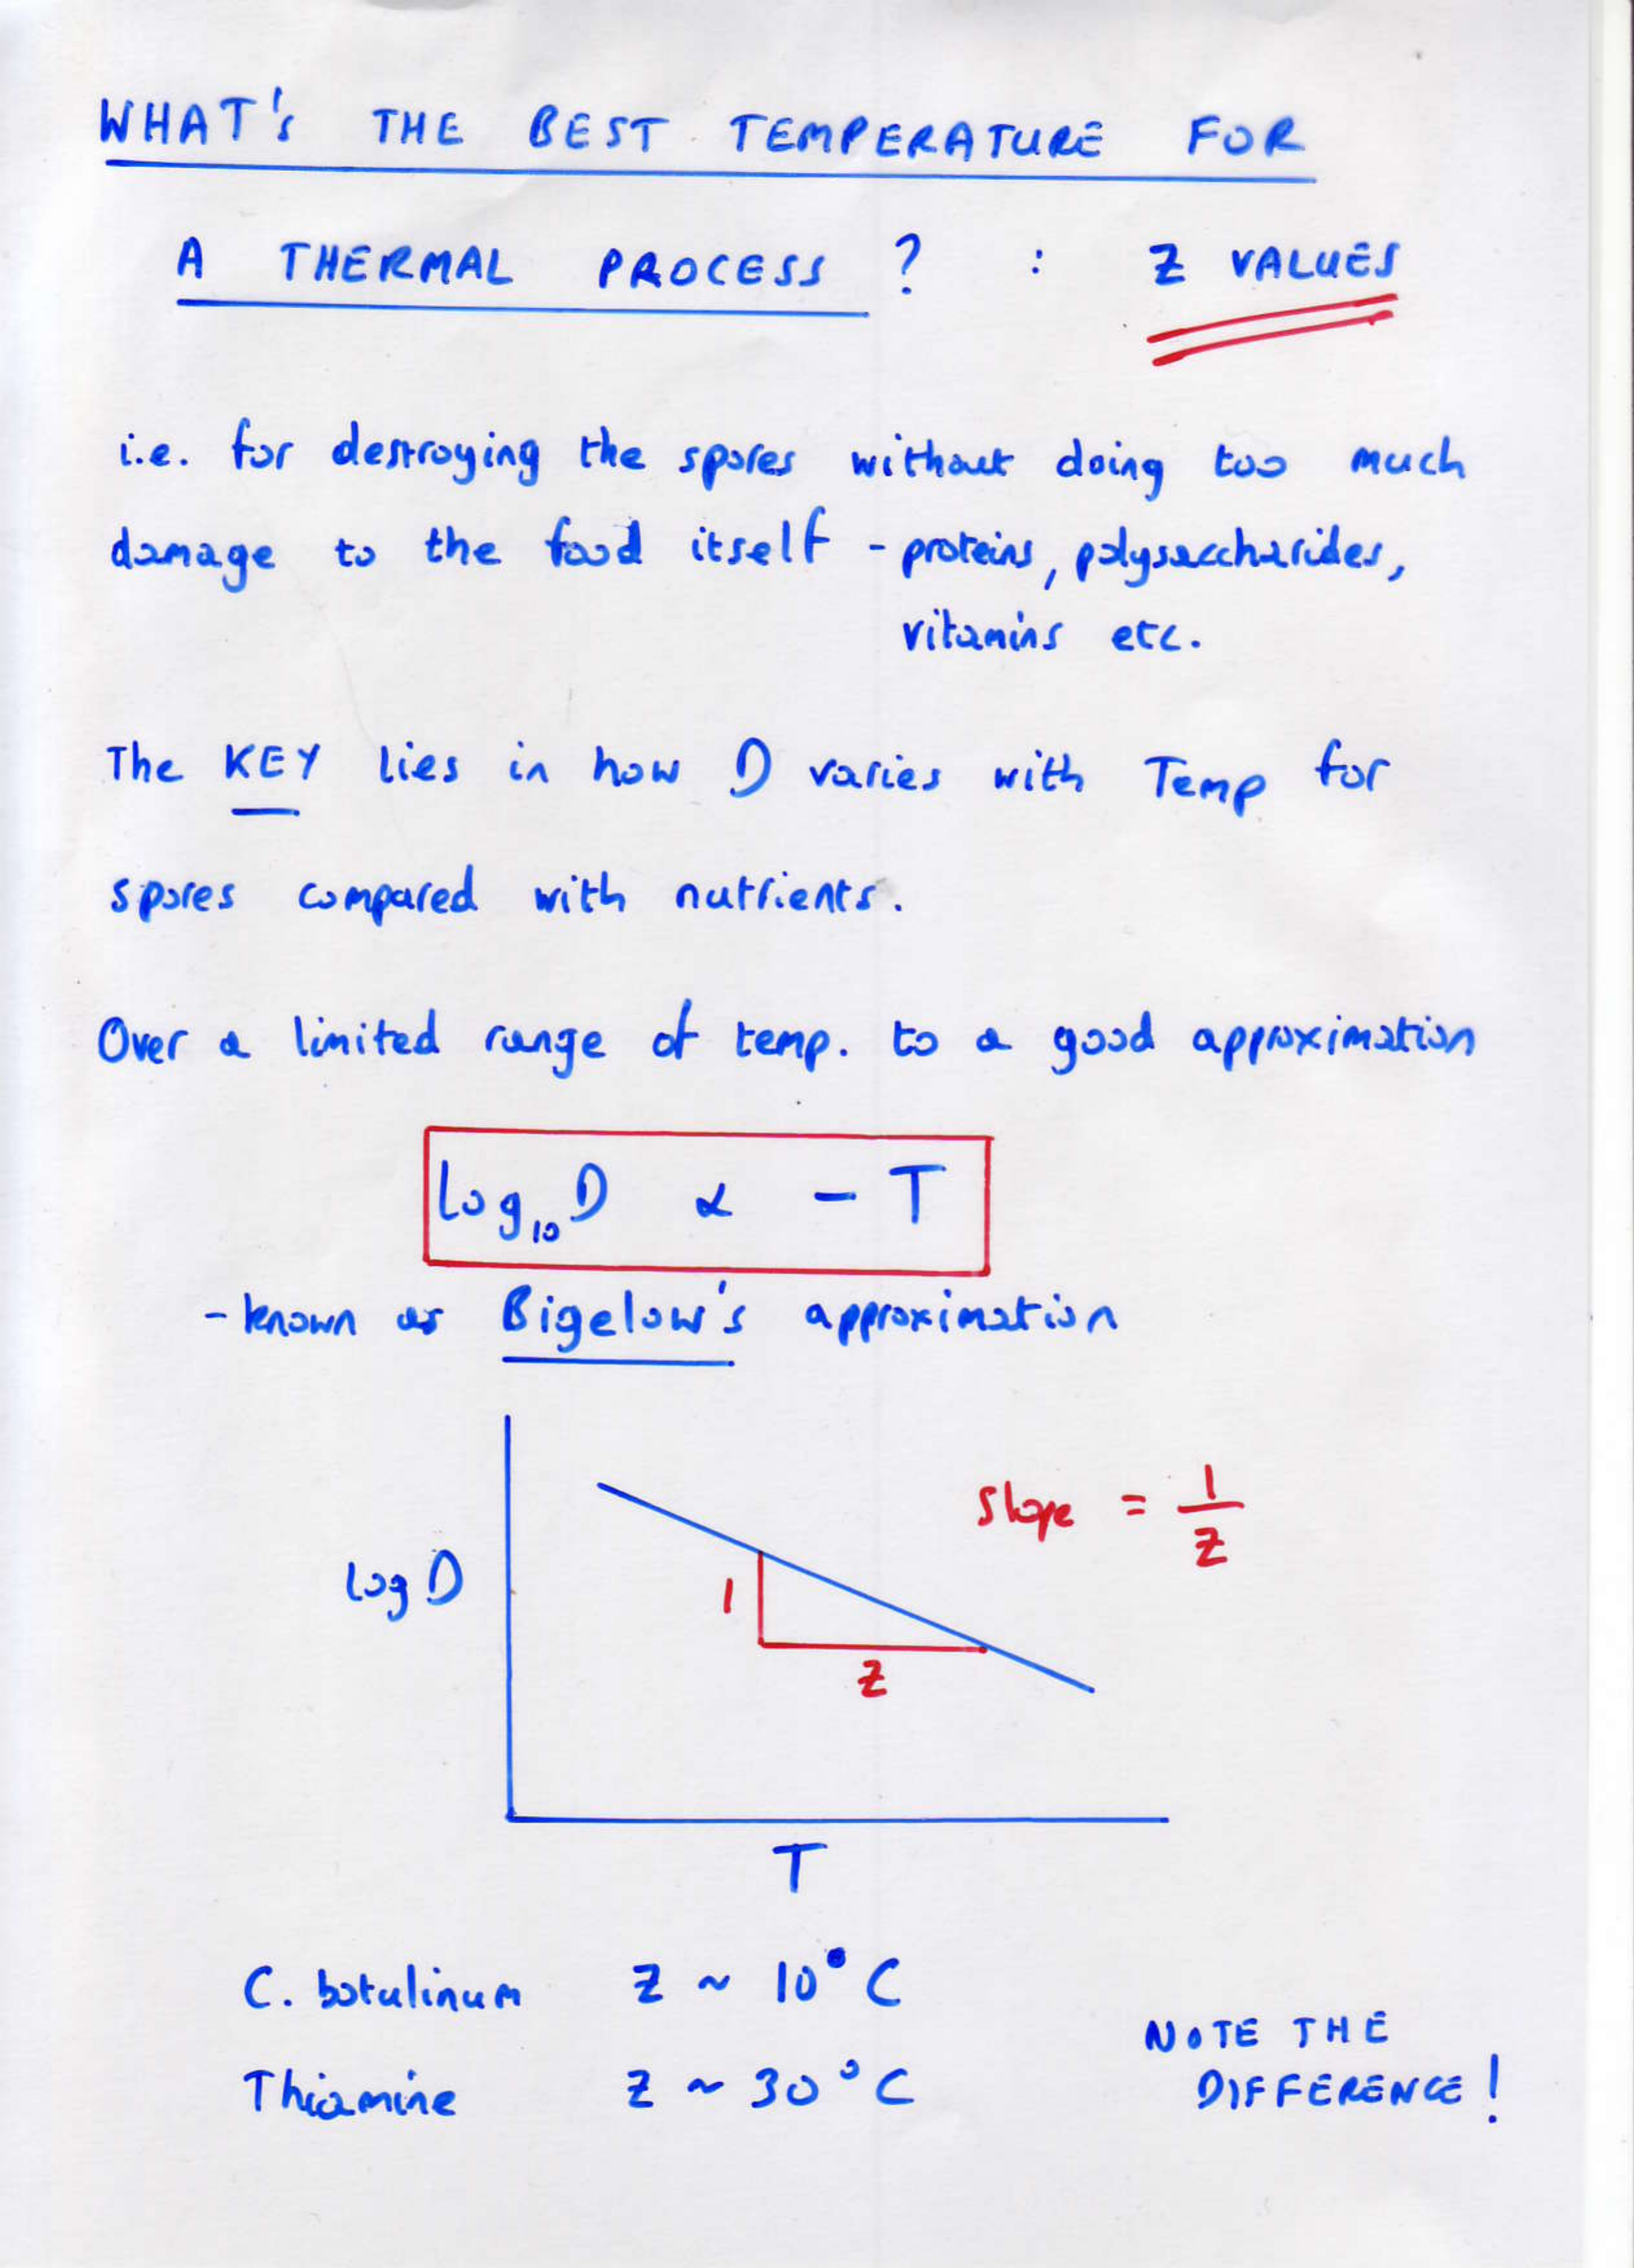 WHAT's THE BEST TEMPERATURE FOR
A THERMAL PROCESS ? : Z VALUES
i.e. for destroying the spores without doing too much
damage to the food itself - proteins, polysaccharides,
vitamins etc.
The KEY lies in how D varies with Temp for
spores compared with nutrients.
Over a limited range of temp. to a good approximation
log₁₀D α - T
- known as Bigelow's approximation
Slope = 1/Z
log D
1
Z
T
C. botulinum Z ~ 10°C
Thiamine Z ~ 30°C
NOTE THE
DIFFERENCE!